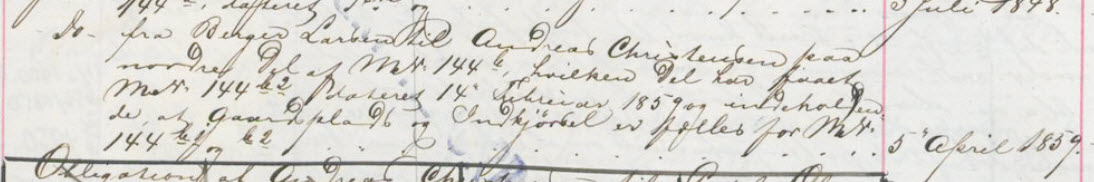 144 b, dateret og 5 Juli 1848.
Do- fra Berger Larsen til Andreas Christensen paa
nordre Del af Mat. 144 b, hvilken Del har faaet
Mat. 144 b 2 Dateret 14 Februar 1859 og indeholden-
de, at Gaardsplads og Indkjørsel er fælles for Mat.
144 b 1 og b 2 5 April 1859.
Obligation af Andreas